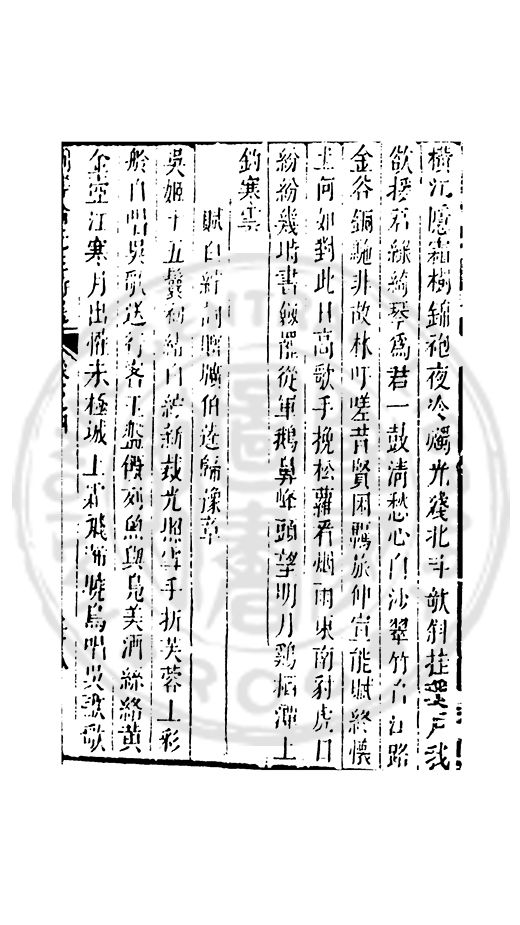 樹沉隱霜樹錦袍夜冷燭光殘北斗欹斜挂戶我
欲援君綠綺琴為君一鼓清愁心白沙翠竹石江路
金谷銅駞非故林吁嗟昔賢困羈旅仲宣能賦終懷
土何如對此日高歌手挽松蘿看烟雨東南豺虎口
紛紛幾時書劍罷從軍鵝鼻峰頭望明月鷄栖潭上
釣寒雲
賦白紵詞贈伯蓮歸豫章
吳姬十五鬢初結白紵新裁光照手折芙蓉上彩
船自唱吳歌送行客玉盤饌列魚與鳧美酒絲絡黃
金壺江寒月出懽未極城上霜飛滿曉烏唱吳歌歌